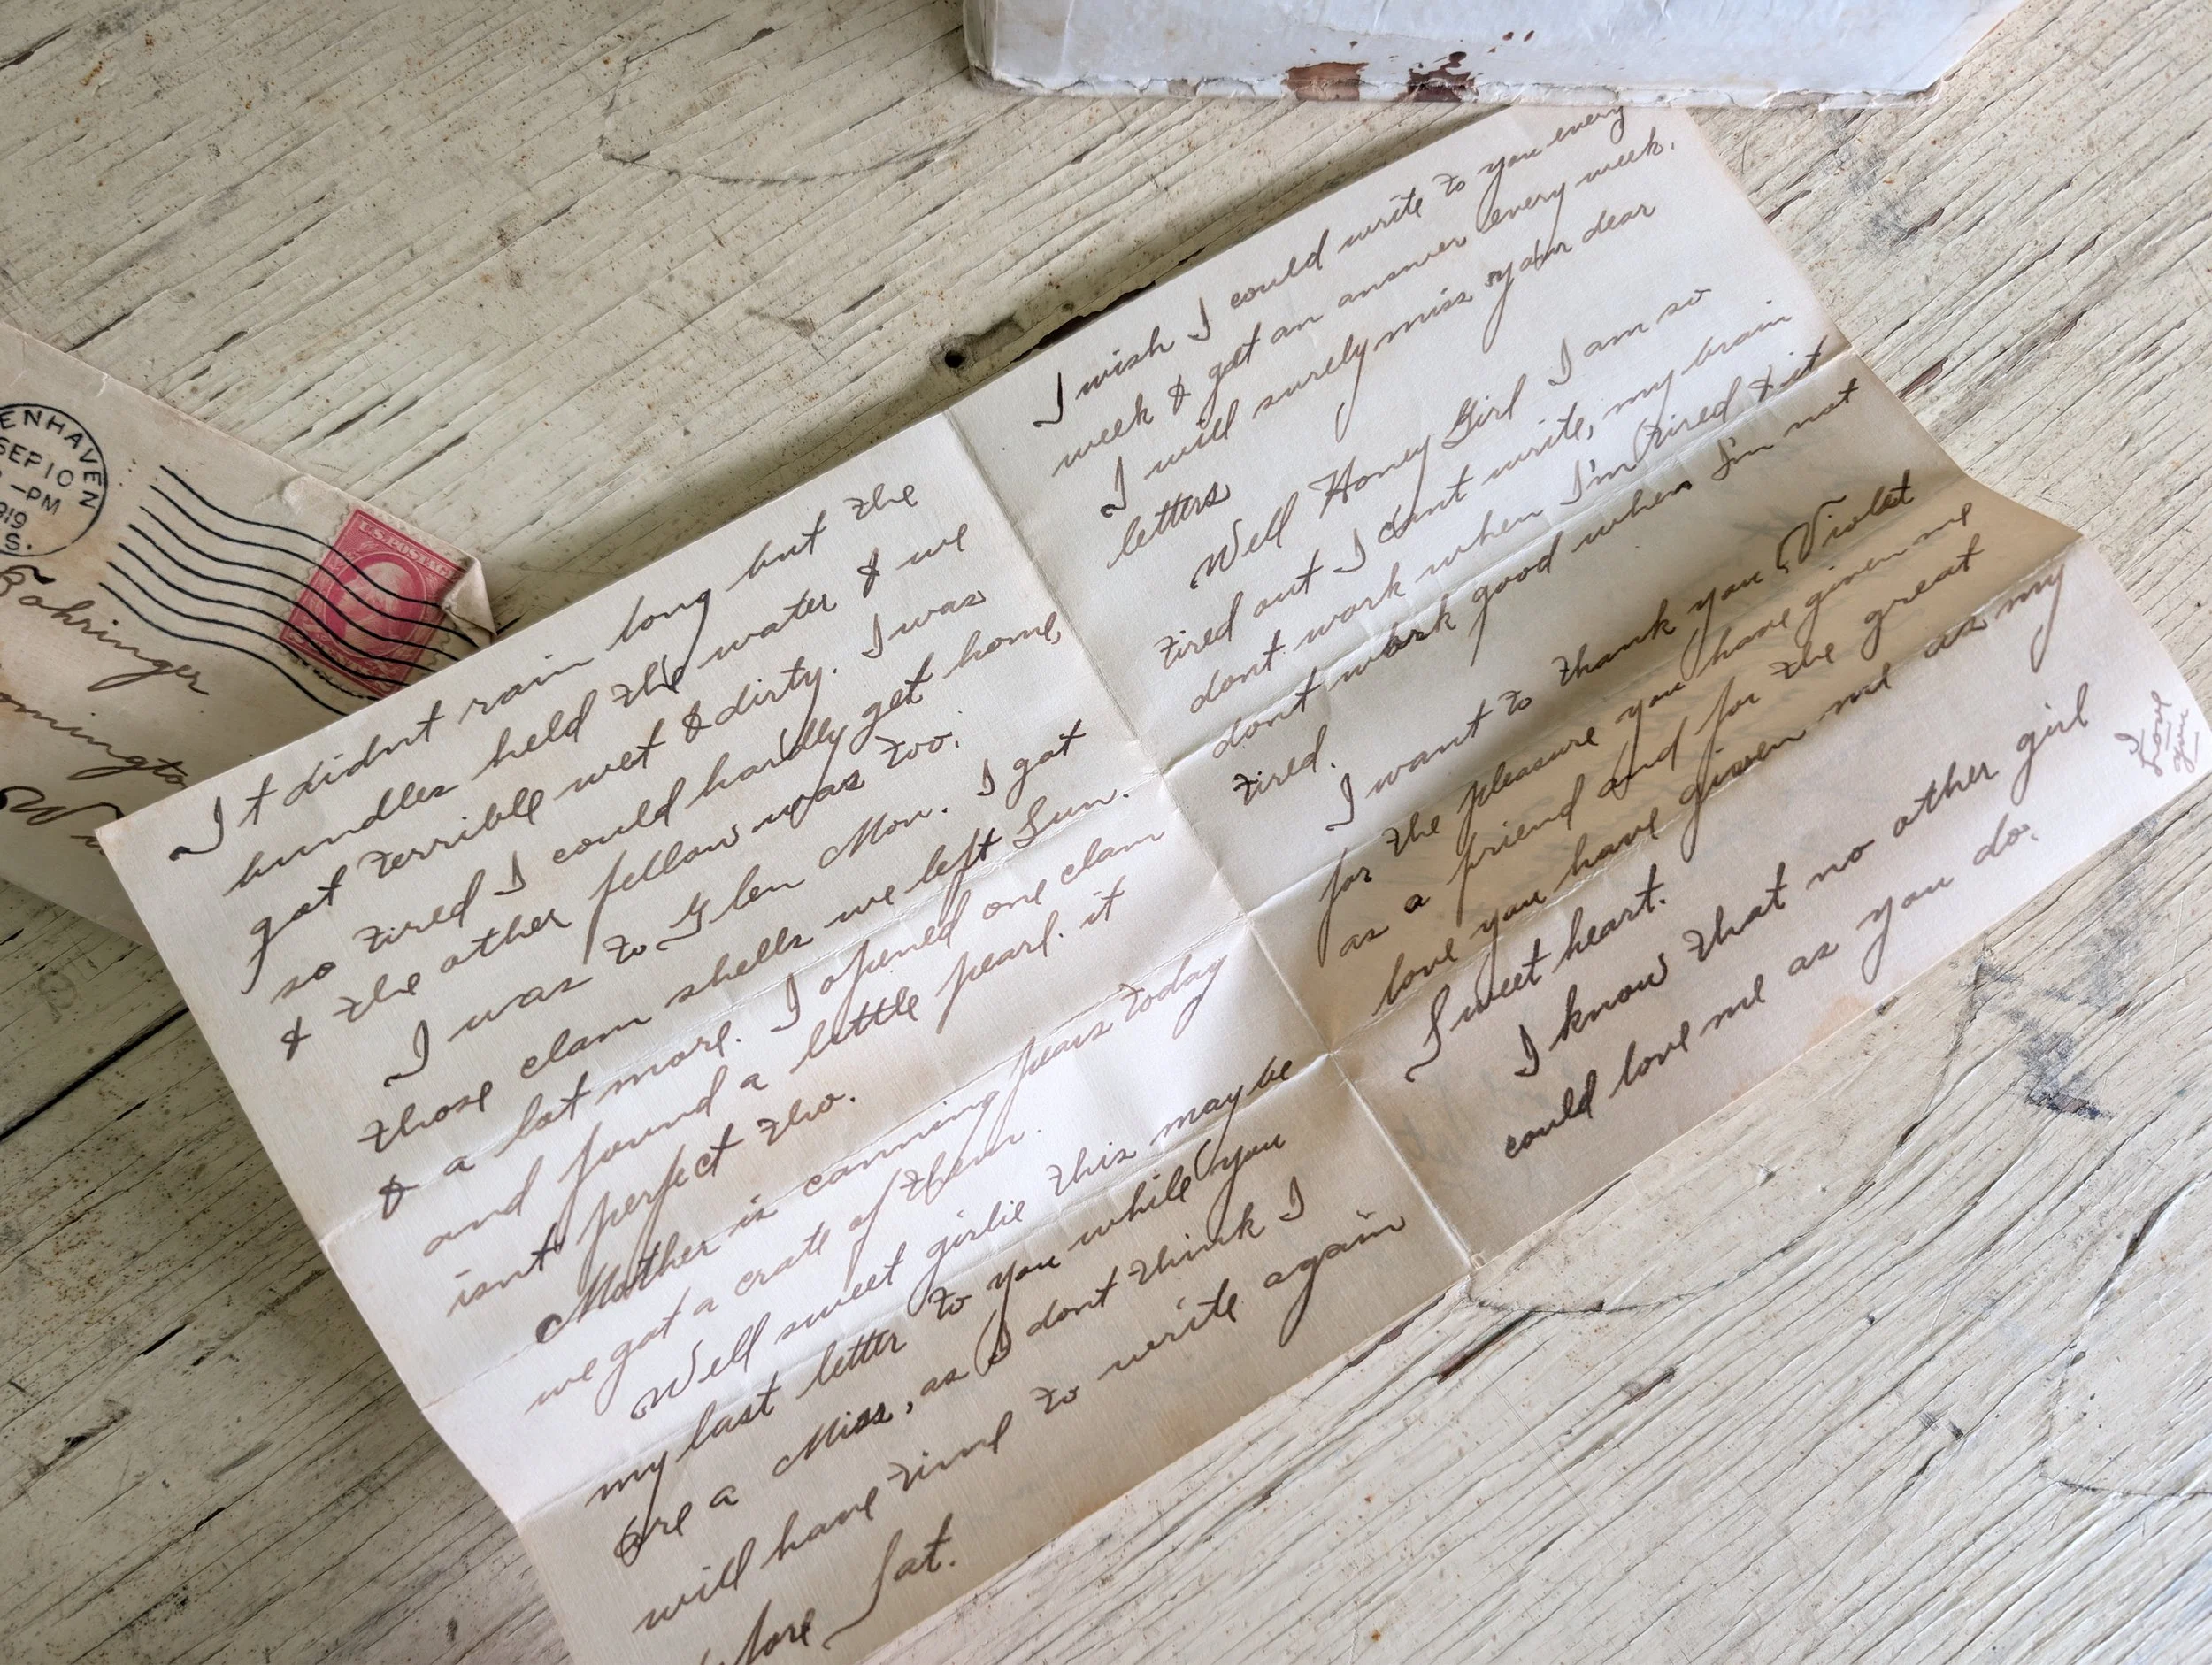 ENHAVEN
SEP 10
-PM
919
S.
U.S. POSTAGE
Bohringer
omingto
It didnt rain long but the
bundles held the water & we
got terrible wet & dirty. I was
so tired I could hardly get home,
& the other fellow was too.
I was to Glen Mon. I got
those clam shells we left Sun.
& a lot more. I opened one clam
and found a little pearl. it
isnt perfect tho.
Mother is canning pears today
we got a crate of them.
Well sweet girlie this may be
my last letter to you while you
are a Miss, as I dont think I
will have time to write again
fore Sat.
I wish I could write to you every
week & get an answer every week.
I will surely miss your dear
letters
Well Honey Girl I am so
tired out I cant write, my brain
dont work when I'm tired & it
dont work good when I'm not
tired.
I want to thank you Violet
for the pleasure you have given me
as a friend and for the great
love you have given me as my
Sweet heart.
I know that no other girl
could love me as you do.
I
Love
you